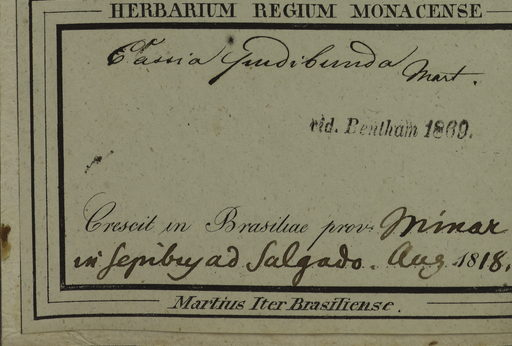 HERBARIUM REGIUM MONACENSE
Cassia pudibunda Mart.
vid. Bentham 1869.
Crescit in Brasiliae prov. Minar
in sepibus ad Salgado. Aug 1818.
Martius Iter Brasiliense.